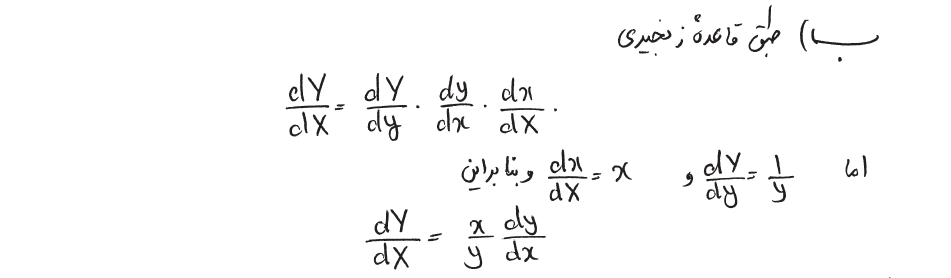 ب) طبق قاعدهٔ زنجیری
dY/dX = dY/dy · dy/dx · dx/dX .
اما dY/dy = 1/y و dx/dX = x و بنابراین
dY/dX = x/y dy/dx